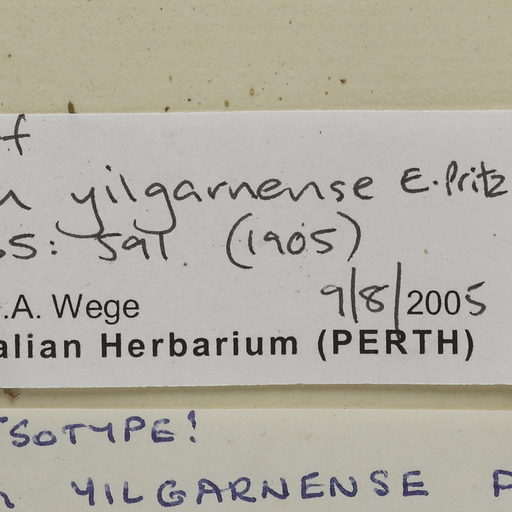 of
yilgarnense E. Pritz
35: 591. (1905)
.A. Wege 9/8/2005
alian Herbarium (PERTH)
ISOTYPE!
YILGARNENSE P